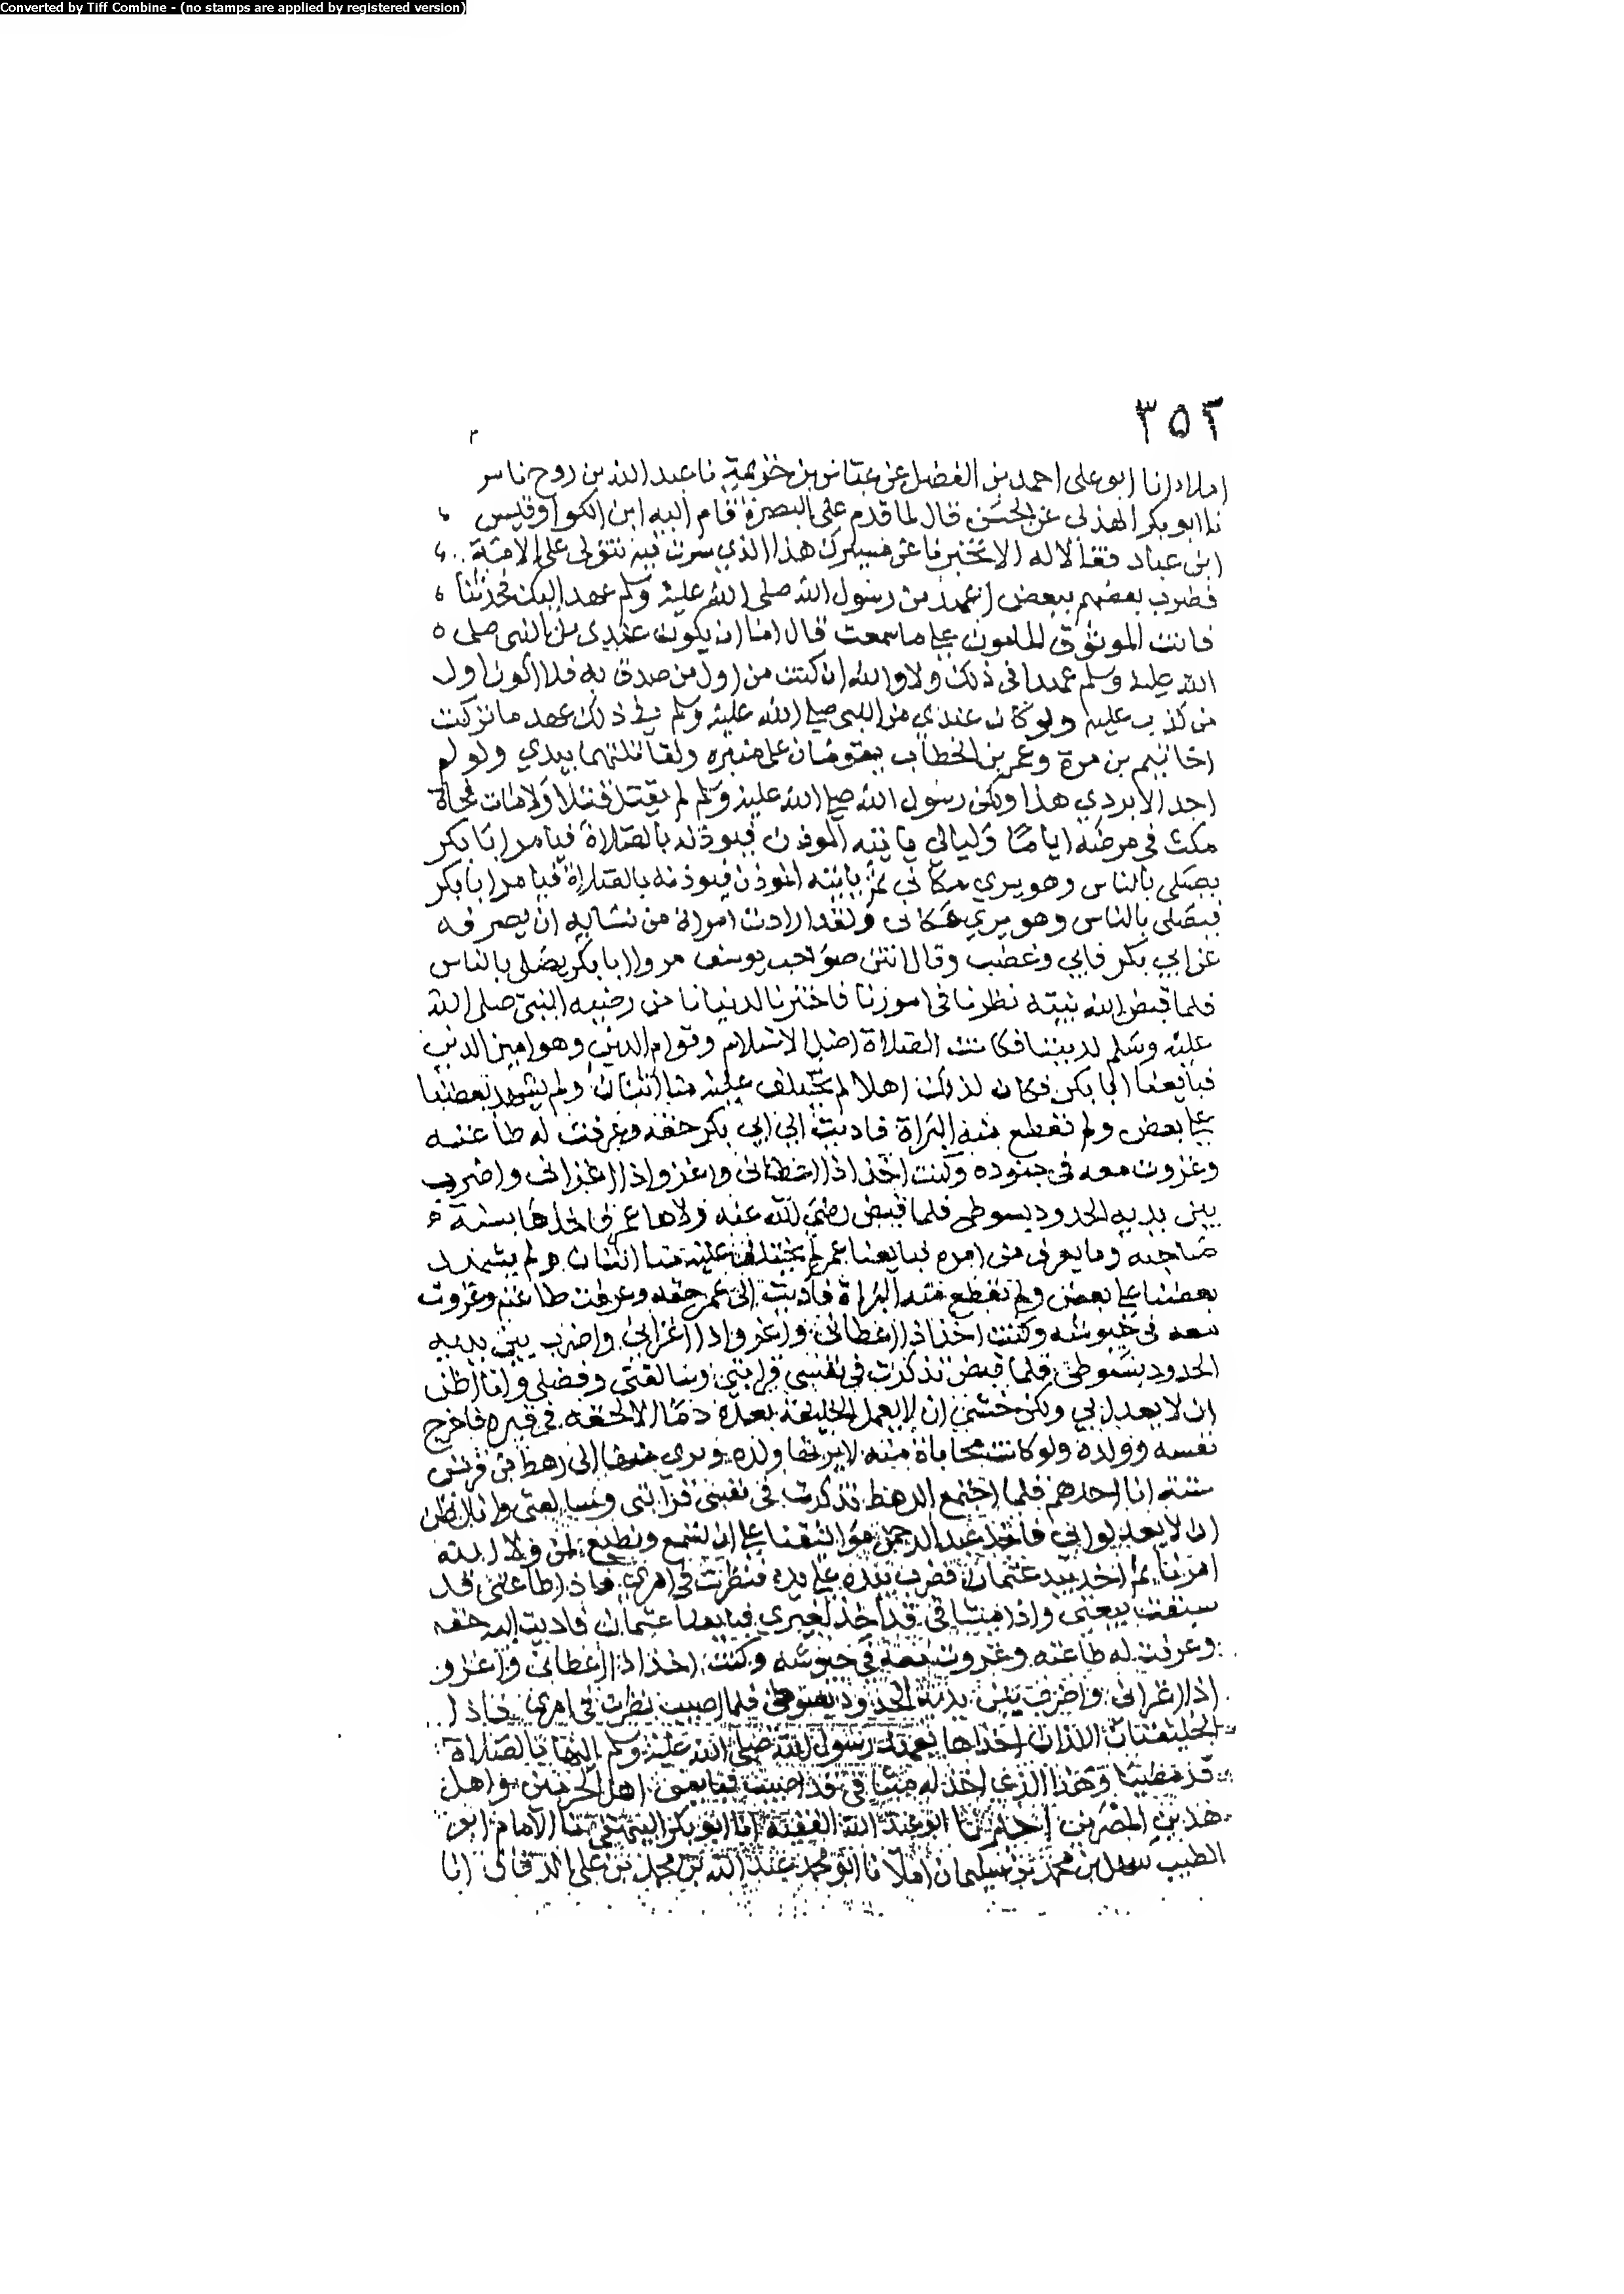 Converted by Tiff Combine - (no stamps are applied by registered version)
٣٥٢
املاء انا ابو على احمد بن الفضل بن خزيمة نا عبد الله بن روح نا
نا ابو بكر الهذلى عن الحسن قال لما قدم على البصرة قام اليه ابن الكوا وقيس
ابن عباد فقالا له الا تخبرنا عن مسيرك هذا الذي سرت فيه تتولى على الامة
فضرب بعضهم ببعض اعهد من رسول الله صلى الله عليه وسلم عهد اليك فحدثنا
فانت الموثوق المامون على ما سمعت قال اما ان يكون عندى من النبى صلى
الله عليه وسلم عهدا فى ذلك ولا والله ان كنت من اول من صدق به فلا اكون اول
من كذب عليه ولو كان عندي من النبى صلى الله عليه وسلم فى ذلك عهد ما تركت
اخا تيم بن مرة وعمر بن الخطاب يقومان على منبره ولقاتلتهما بيدي ولو لم
اجد الا بردي هذا ولكن رسول الله صلى الله عليه وسلم لم يقتل قتلا ولا مات فجاة
مكث فى مرضه اياما وليالي ياتيه الموذن فيوذنه بالصلاة فيامر ابا بكر
يصلى بالناس وهو يري مكانى ثم ياتيه الموذن فيوذنه بالصلاة فيامر ابا بكر
فيصلى بالناس وهو يري مكانى ولقد ارادت امراة من نسايه ان يصرفه
عن ابي بكر فابي وغضب وقال انتن صواحب يوسف مروا ابا بكر يصلى بالناس
فلما قبض الله نبيه نظرنا فى امورنا فاخترنا لدنيانا من رضيه النبى صلى الله
عليه وسلم لديننا فكانت الصلاة اصل الاسلام وقوام الدين وهو امين الدين
فبايعنا ابا بكر فكان لذلك اهلا لم يختلف عليه منا اثنان ولم يشهد بعضنا
على بعض ولم نقطع منه البراة فاديت الى ابي بكر حقه وعرفت له طاعته
وغزوت معه فى جنوده وكنت اخذ اذا اعطانى واغزو اذا اغزانى واضرب
بين يديه الحدود بسوطى فلما قبض رضى الله عنه ولاها عمر فاخذها بسنة
صاحبه وما يعرف من امره فبايعنا عمر لم يختلف عليه منا اثنان ولم يشهد
بعضنا على بعض ولم نقطع منه البراة فاديت الى عمر حقه وعرفت طاعته وغزوت
معه فى جيوشه وكنت اخذ اذا اعطانى واغزو اذا اغزانى واضرب بين يديه
الحدود بسوطى فلما قبض تذكرت فى نفسى قرابتى وسالفتى وفضلى وانا اظن
ان لا يعدل بي ولكن خشى ان لا يعمل الخليفة بعده ذنبا الا لحقه فى قبره فاخرج
نفسه وولده ولو كانت محاباة منه لاثر بها ولده وبري منها الى رهط من قريش
ستة انا احدهم فلما اجتمع الرهط تذكرت فى نفسى قرابتى وسالفتى وانا اظن
ان لا يعدلوا بي فاخذ عبد الرحمن مواثقنا على ان نسمع ونطيع لمن ولاه الله
امرنا ثم اخذ بيد عثمان فضرب بيده على يده فنظرت فى امرى فاذا طاعتى قد
سبقت بيعتى واذا ميثاقى قد اخذ لغيري فبايعنا عثمان فاديت اليه حقه
وعرفت له طاعته وغزوت معه فى جيوشه وكنت اخذ اذا اعطانى واغزو
اذا اغزانى واضرب بين يديه الحدود بسوطى فلما اصيب نظرت فى امرى فاذا
الخليفتان اللذان اخذاها بعهد رسول الله صلى الله عليه وسلم اليهما بالصلاة
قد مضيا وهذا الذى اخذ له ميثاقى قد اصيب فبايعنى اهل الحرمين واهل
هذين المصرين ابو عبد الله الفقيه انا ابو بكر البيهقى نا الامام ابو
الطيب سهل بن محمد بن سليمان املا نا ابو محمد عبد الله بن محمد بن على الدقاق انا